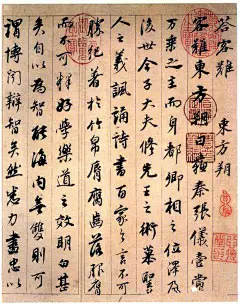 答客難 東方朔
客難東方朔曰蘇秦張儀壹當
万乘之主而身都卿相之位澤及
後世今子大夫修先王之術慕聖
人之義諷誦詩書百家之言不可
勝紀著於竹帛脣腐齒落服膺
而不可釋好學樂道之效明白甚
矣自以為智能海內無雙則可
謂博聞辯智矣然悉力盡忠以